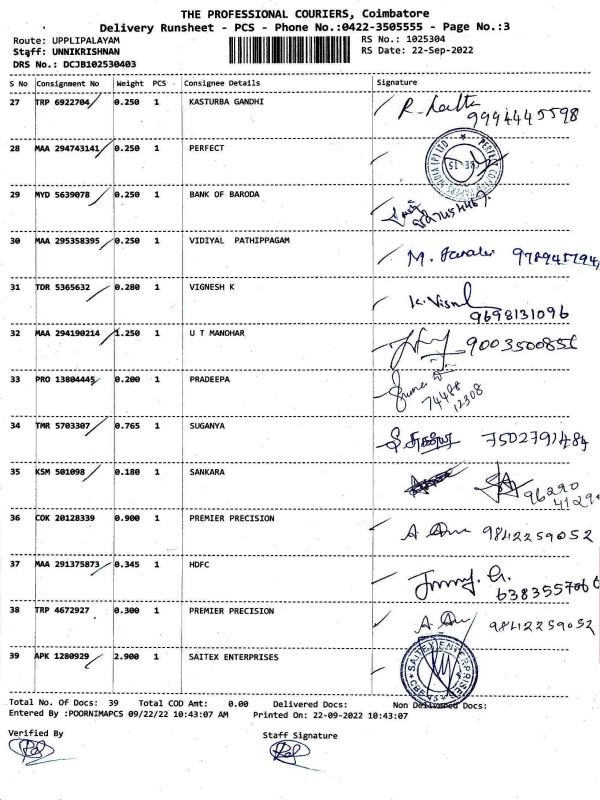 THE PROFESSIONAL COURIERS, Coimbatore
Delivery Runsheet - PCS - Phone No.:0422-3505555 - Page No.:3
Route: UPPLIPALAYAM RS No.: 1025304
Staff: UNNIKRISHNAN RS Date: 22-Sep-2022
DRS No.: DCJB102530403
S No Consignment No Weight PCS Consignee Details Signature
27 TRP 6922704 0.250 1 KASTURBA GANDHI 9994445598
28 MAA 294743141 0.250 1 PERFECT
29 MYD 5639078 0.250 1 BANK OF BARODA
30 MAA 295358395 0.250 1 VIDIYAL PATHIPPAGAM M.
31 TDR 5365632 0.280 1 VIGNESH K 9698131096
32 MAA 294190214 1.250 1 U T MANOHAR
33 PRO 13804445 0.200 1 PRADEEPA 74488
12308
34 TMR 5703307 0.765 1 SUGANYA 7502791484
35 KSM 501098 0.180 1 SANKARA 96290
36 COK 20128339 0.900 1 PREMIER PRECISION 9842259052
37 MAA 291375873 0.345 1 HDFC
38 TRP 4672927 0.300 1 PREMIER PRECISION 9842259052
39 APK 1280929 2.900 1 SAITEX ENTERPRISES SAITEX ENTERPRISES
Total No. Of Docs: 39 Total COD Amt: 0.00 Delivered Docs: Non Delivered Docs:
Entered By :POORNIMAPCS 09/22/22 10:43:07 AM Printed On: 22-09-2022 10:43:07
Verified By Staff Signature